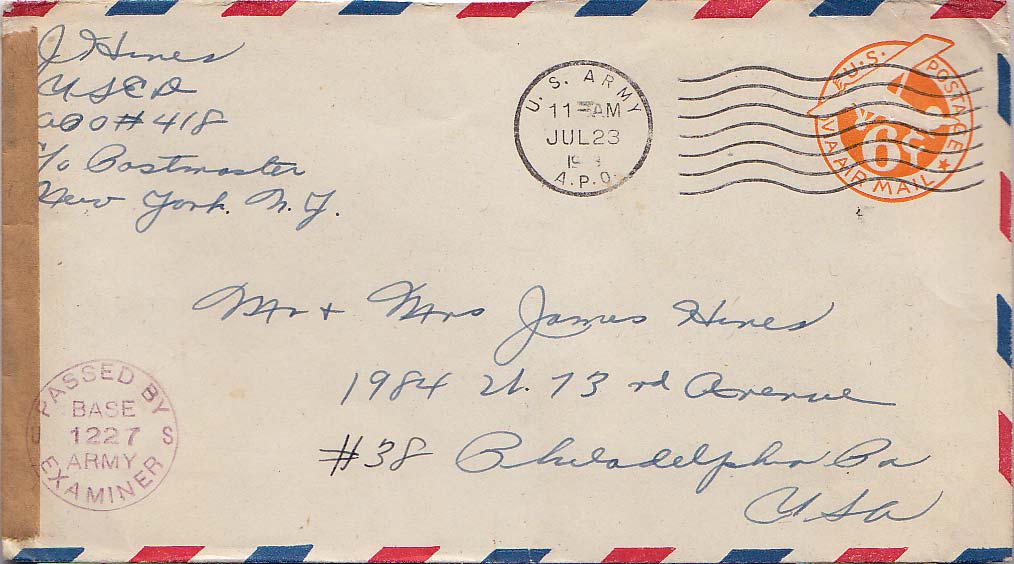 J Hines
USED
APO # 418
c/o Postmaster
New York. N.Y.
U. S. ARMY
11 AM
JUL 23
A.P.O.
U.S. POSTAGE
6¢
VIA AIR MAIL
Mr + Mrs James Hines
1984 W. 73 rd Avenue
#38 Philadelphia Pa
USA
PASSED BY
BASE
U 1227 S
ARMY
EXAMINER